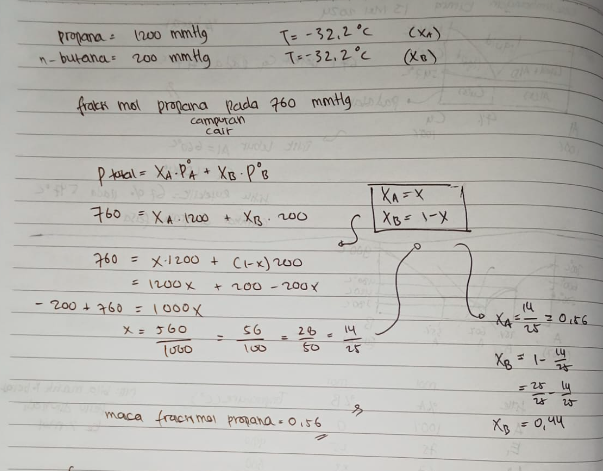 propana = 1200 mmHg T = -32,2°C (XA)
n-butana = 200 mmHg T = -32,2°C (XB)
fraksi mol propana pada 760 mmHg
campuran
cair
P total = XA . P°A + XB . P°B
XA = x
XB = 1-x
760 = XA . 1200 + XB . 200
760 = x . 1200 + (1-x) 200
= 1200x + 200 - 200x
- 200 + 760 = 1000x
x = 560/1000 = 56/100 = 28/50 = 14/25
XA = 14/25 = 0,56
XB = 1 - 14/25
= 25/25 - 14/25
XB = 0,44
maca fraksi mol propana = 0,56